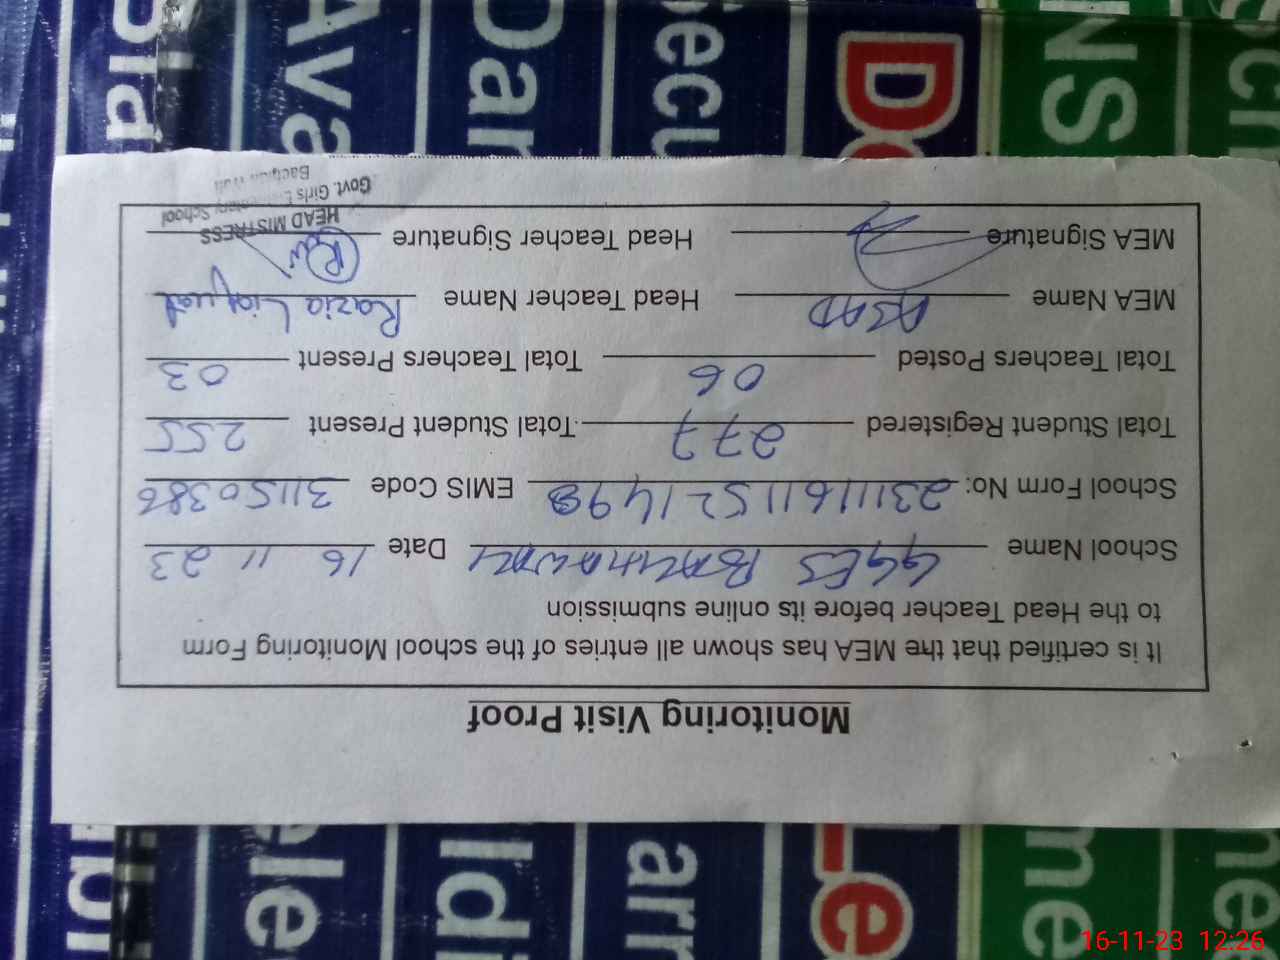 Monitoring Visit Proof
It is certified that the MEA has shown all entries of the school Monitoring Form
to the Head Teacher before its online submission
School Name GGES Date 16 11 23
School Form No: 2311161152149 EMIS Code 31150386
Total Student Registered 277 Total Student Present 255
Total Teachers Posted 06 Total Teachers Present 03
MEA Name ASAD Head Teacher Name Razia Liaquat
MEA Signature Head Teacher Signature
HEAD MISTRESS
Govt. Girls Elementary School
16-11-23 12:26